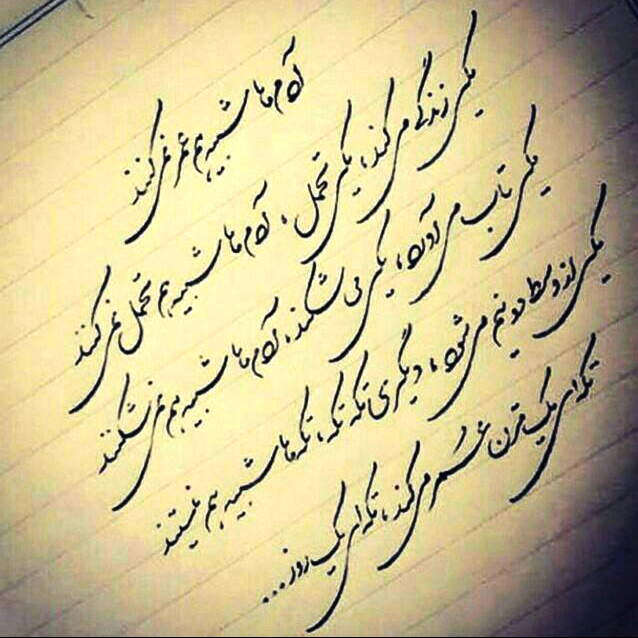 آدم ها شبیه هم عمر نمی کنند
یکی زندگی می کند، یکی تحمل، آدم ها شبیه هم تحمل نمی کنند
یکی تاب می آورد، یکی می شکند، آدم ها شبیه هم نمی شکنند
یکی از وسط دو نیم می شود، دیگری تکه تکه، تکه ها شبیه هم نیستند
تکه ای یک قرن عُمر می کند، تکه ای یک روز...